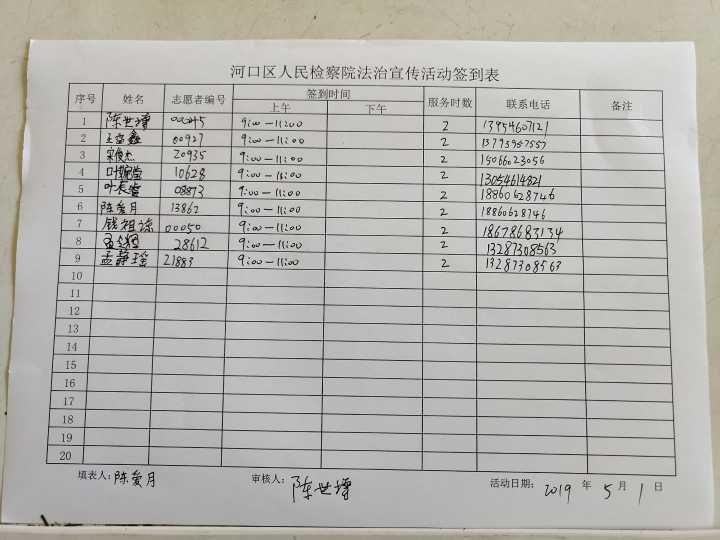 河口区人民检察院法治宣传活动签到表
序号 姓名 志愿者编号 签到时间 服务时数 联系电话 备注
上午 下午
1 陈世增 00045 9:00-11:00 2 13954607121
2 00927 9:00-11:00 2 13793987557
3 宋俊杰 20935 9:00-11:00 2 15066023056
4 10628 9:00-11:00 2 13054614821
5 08873 9:00-11:00 2 18860628746
6 陈爱月 13862 9:00-11:00 2 18860628746
7 钱祖谅 00050 9:00-11:00 2 18678683134
8 28612 9:00-11:00 2 13287308563
9 孟静瑶 21883 9:00-11:00 2 13287308563
10
11
12
13
14
15
16
17
18
19
20
填表人:陈爱月 审核人:陈世增 活动日期:2019年5月1日